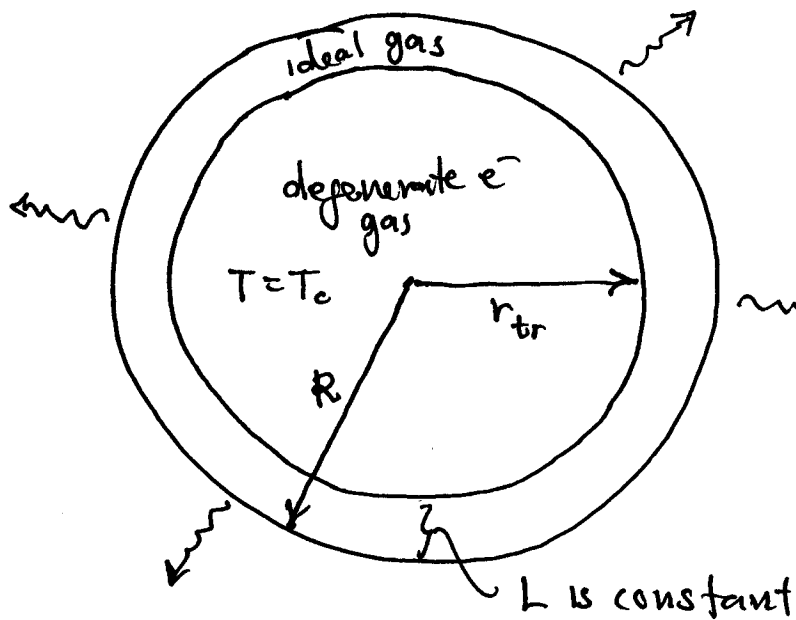 ideal gas
degenerate e⁻
gas
T = T_c
r_tr
R
L is constant